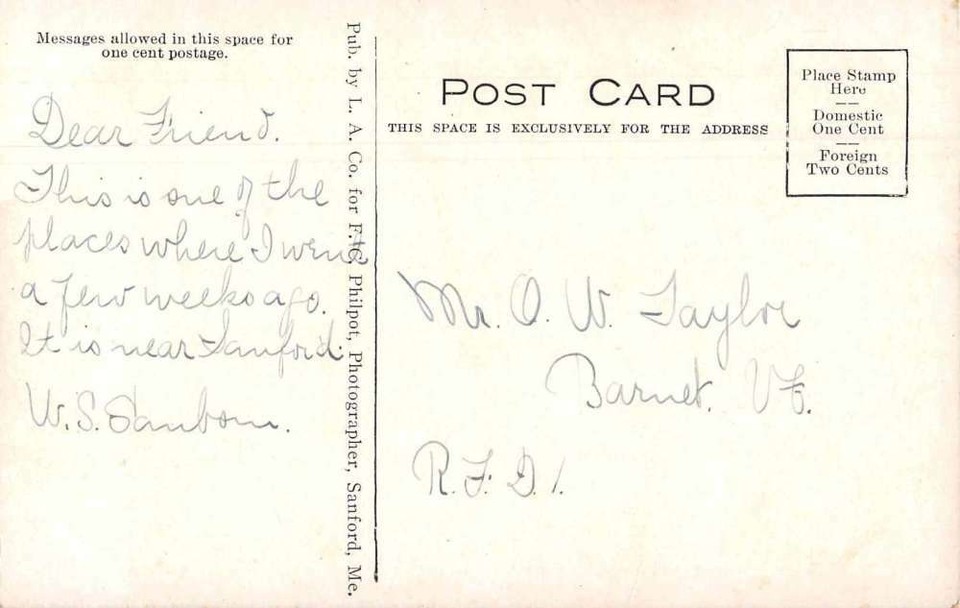 Messages allowed in this space for
one cent postage.
Dear Friend.
This is one of the
places where I went
a few weeks ago.
It is near Sanford.
W. S. Sanborn.
Pub. by L. A. Co. for F. C. Philpot, Photographer, Sanford, Me.
POST CARD
THIS SPACE IS EXCLUSIVELY FOR THE ADDRESS
Place Stamp
Here
Domestic
One Cent
Foreign
Two Cents
Mr. O. W. Taylor
Barnet. Vt.
R. F. D. 1.